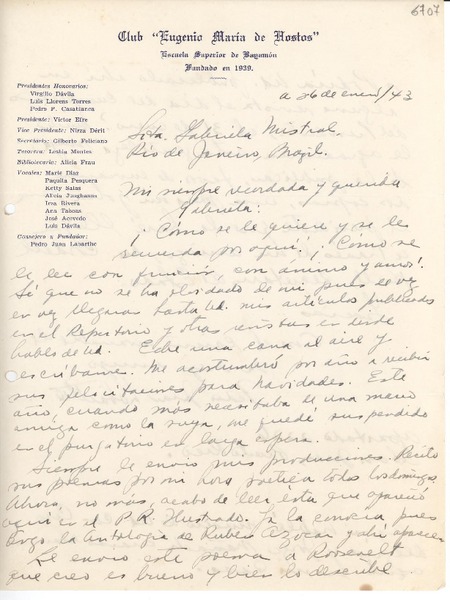 6707
Club "Eugenio María de Hostos"
Escuela Superior de Bayamón
Fundado en 1939.
a 26 de enero/43
Presidentes Honorarios:
Virgilio Dávila
Luis Llorens Torres
Pedro P. Casablanca
Presidente: Víctor Efre
Vice Presidente: Nirza Déril
Secretario: Gilberto Feliciano
Tesorera: Lesbia Montes
Bibliotecario: Alicia Frau
Vocales: María Díaz
Paquita Pesquera
Ketty Salas
Alicia Junghanns
Irsa Rivera
Ana Tabosa
José Acevedo
Luis Dávila
Consejero y Fundador:
Pedro Juan Labarthe
Srta. Gabriela Mistral
Río de Janeiro, Brazil.
Mi siempre recordada y querida
Gabriela:
¡Cómo se le quiere y se le
recuerda por aquí! ¡Cómo se
le lee con fruición, con ánimo y amor!
Sé que no se ha olvidado de mí pues de vez
en vez llegaran hasta Ud. mis artículos publicados
en el Repertorio y otras revistas en donde
hablo de Ud. Eche una cana al aire y
escríbame. Me acostumbró por año a recibir
sus felicitaciones para navidades. Este
año, cuando más necesitaba de una mano
amiga como la suya, me quedé suspendido
en el purgatorio en larga espera.
Siempre le envío mis producciones. Recito
sus poemas por mi hora poética todos los domingos
Ahora, no más, acabo de leer esta que apareció
aquí en el P.R. Ilustrado. Ya la conocía pues
tengo la Antología de Rubén Azocar y ahí aparece
Le envío este poema a Roosevelt
que creo es bueno y bien lo describe.